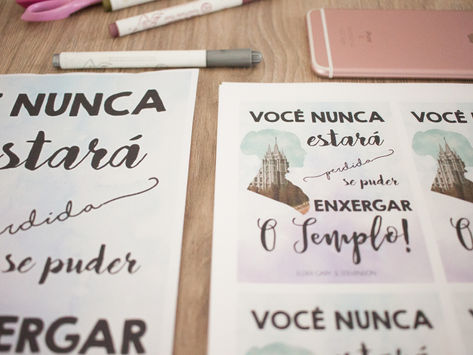 VOCÊ NUNCA
estará
perdida
se puder
ENXERGAR
VOCÊ NUNCA
estará
perdida
se puder
ENXERGAR
O Templo!
ELDER GARY E. STEVENSON
VOCÊ NUNCA
VOCÊ NUNCA
estará